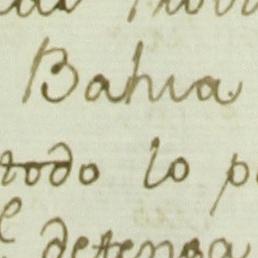 Bahia
todo lo p
detenga